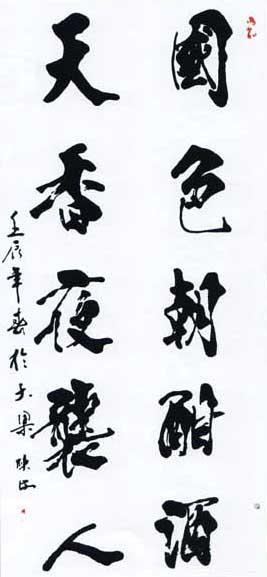 國色朝酣酒
天香夜襲人
壬辰年春於大梁 陳